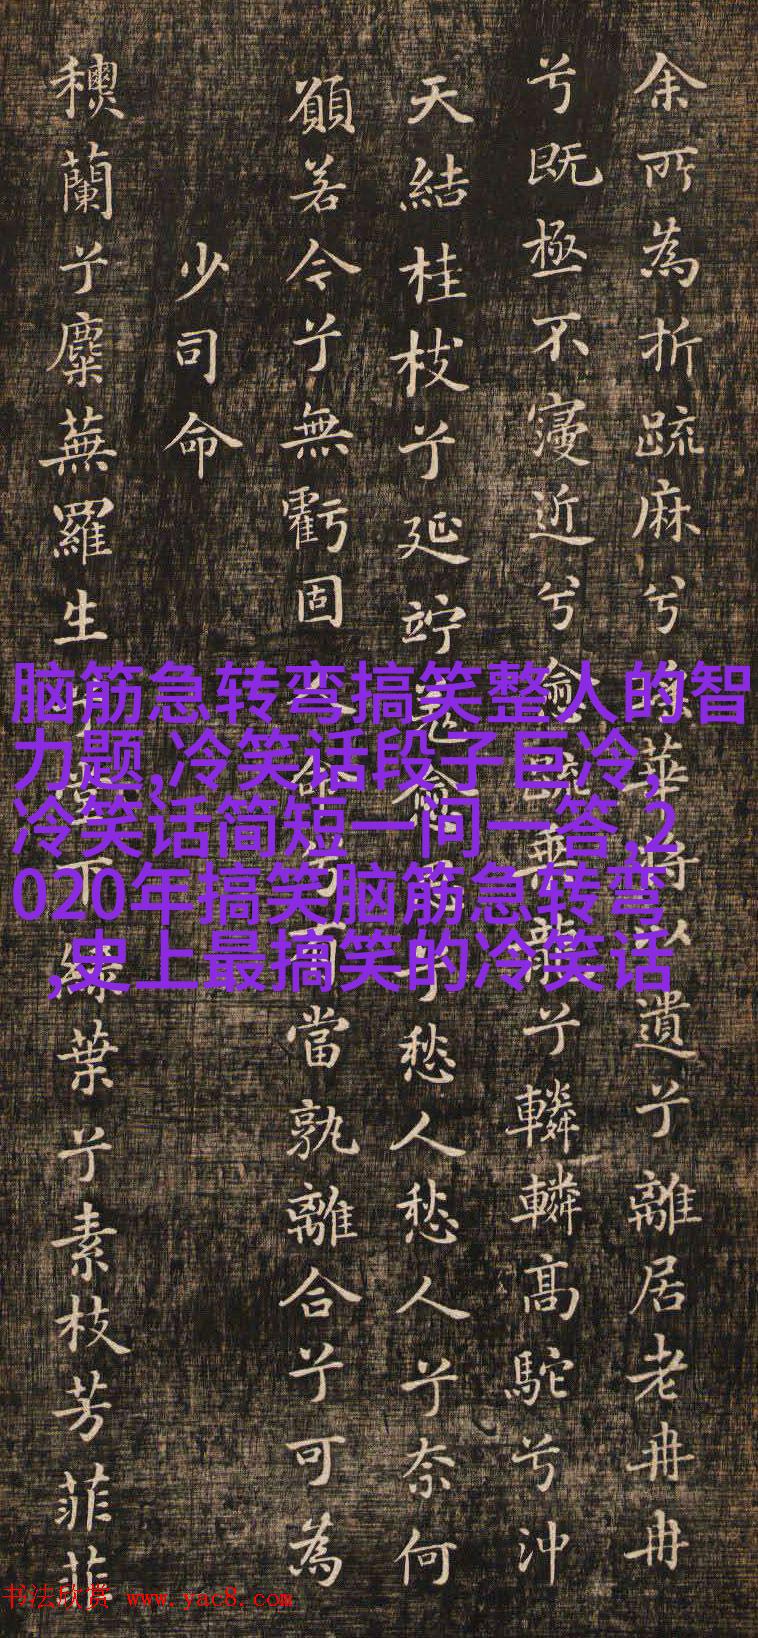 余所為折疏麻兮華將以遺兮離居老冉冉
兮既極不寖近兮愈疏乘龍兮轔轔高駝兮沖
天結桂枝兮延竚羌愈兮愁人愁人兮奈何
願若今兮無虧固命兮有當孰離合兮可為
少司命
蘭兮麋蕪羅生堂下綠葉兮素枝芳菲菲
脑筋急转弯搞笑整人的智
力题,冷笑话段子巨冷,
冷笑话简短一问一答,2
020年搞笑脑筋急转弯
,史上最搞笑的冷笑话
书法欣赏 www.yac8.com